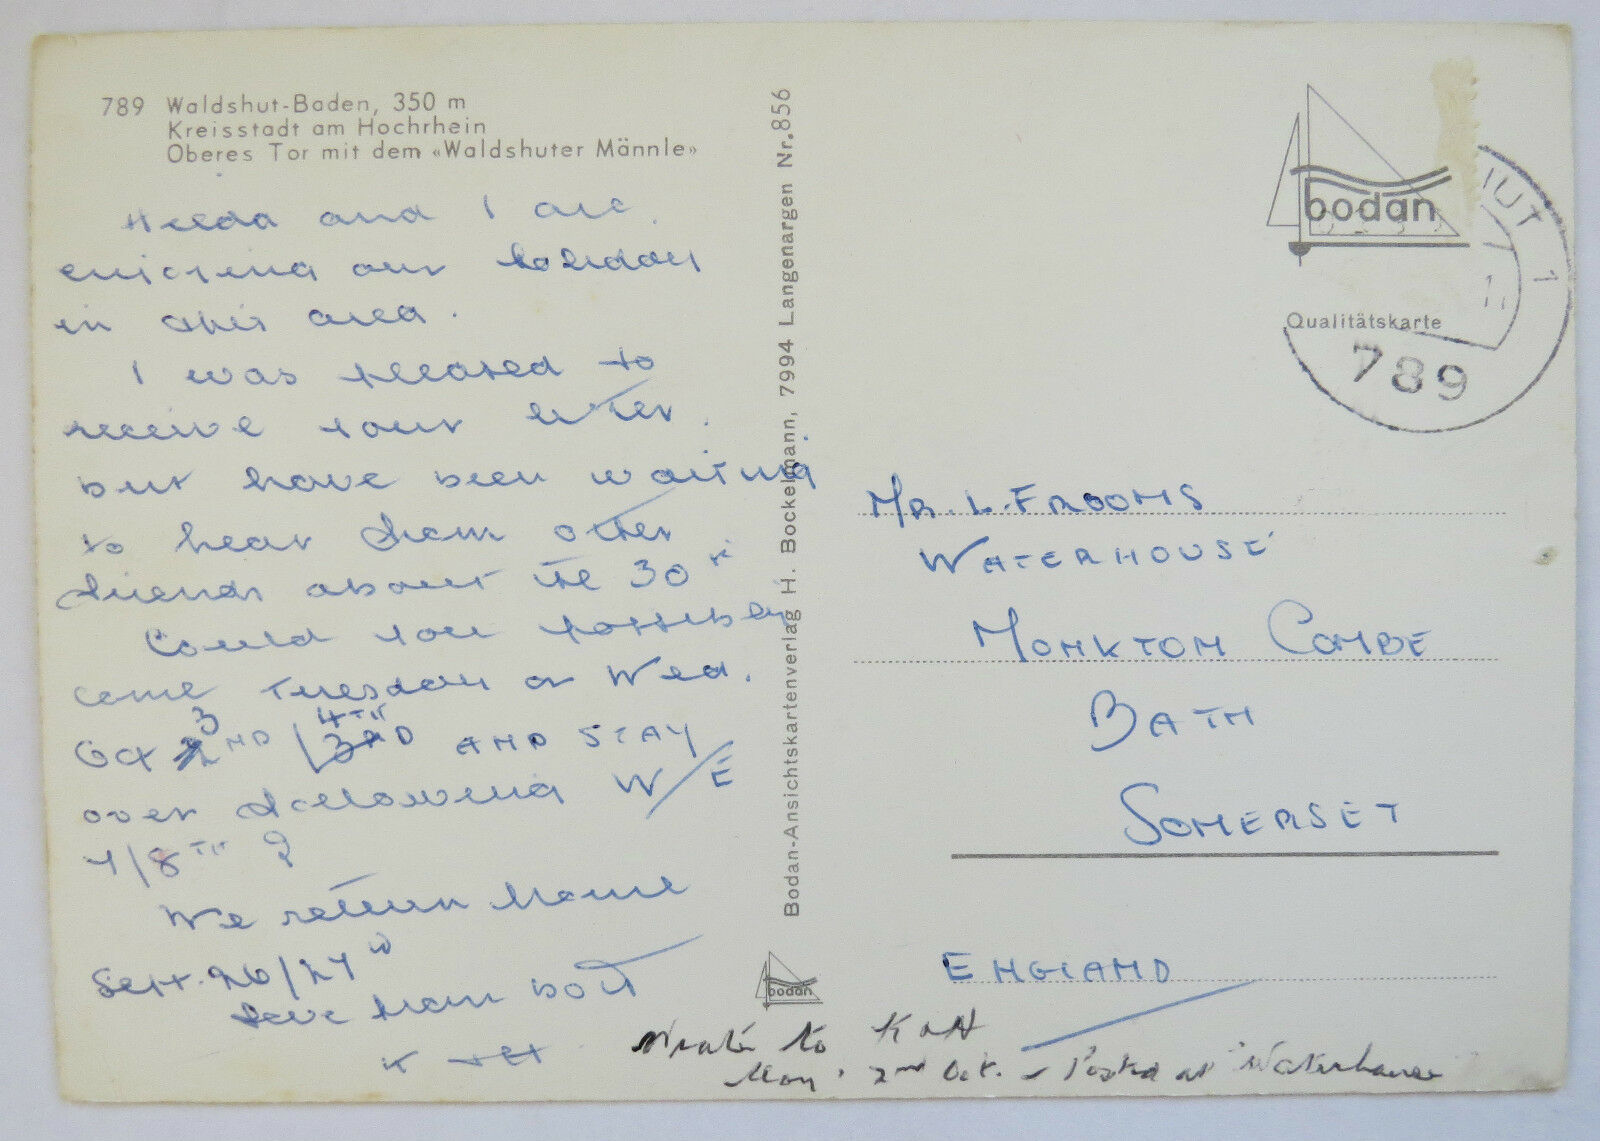 789 Waldshut-Baden, 350 m
Kreisstadt am Hochrhein
Oberes Tor mit dem «Waldshuter Männle»
Hilda and I are
enjoying our holiday
in this area.
I was pleased to
receive your letter
but have been waiting
to hear from other
friends about the 30th
Could you possibly
come Tuesday or Wed.
Oct 3 ND / 4TH AND STAY
over following W/E
7/8TH ?
We return home
Sept. 26/27
Love from both
K + H
Bodan-Ansichtskartenverlag H. Bockelmann, 7994 Langenargen Nr. 856
bodan
bodan
Qualitätskarte
HUT 1
789
MR. L. FROOMS
WATERHOUSE
MONKTON COMBE
BATH
SOMERSET
ENGLAND
Wrote to K & H
Mon, 2nd Oct. - Posted at Waterhouse